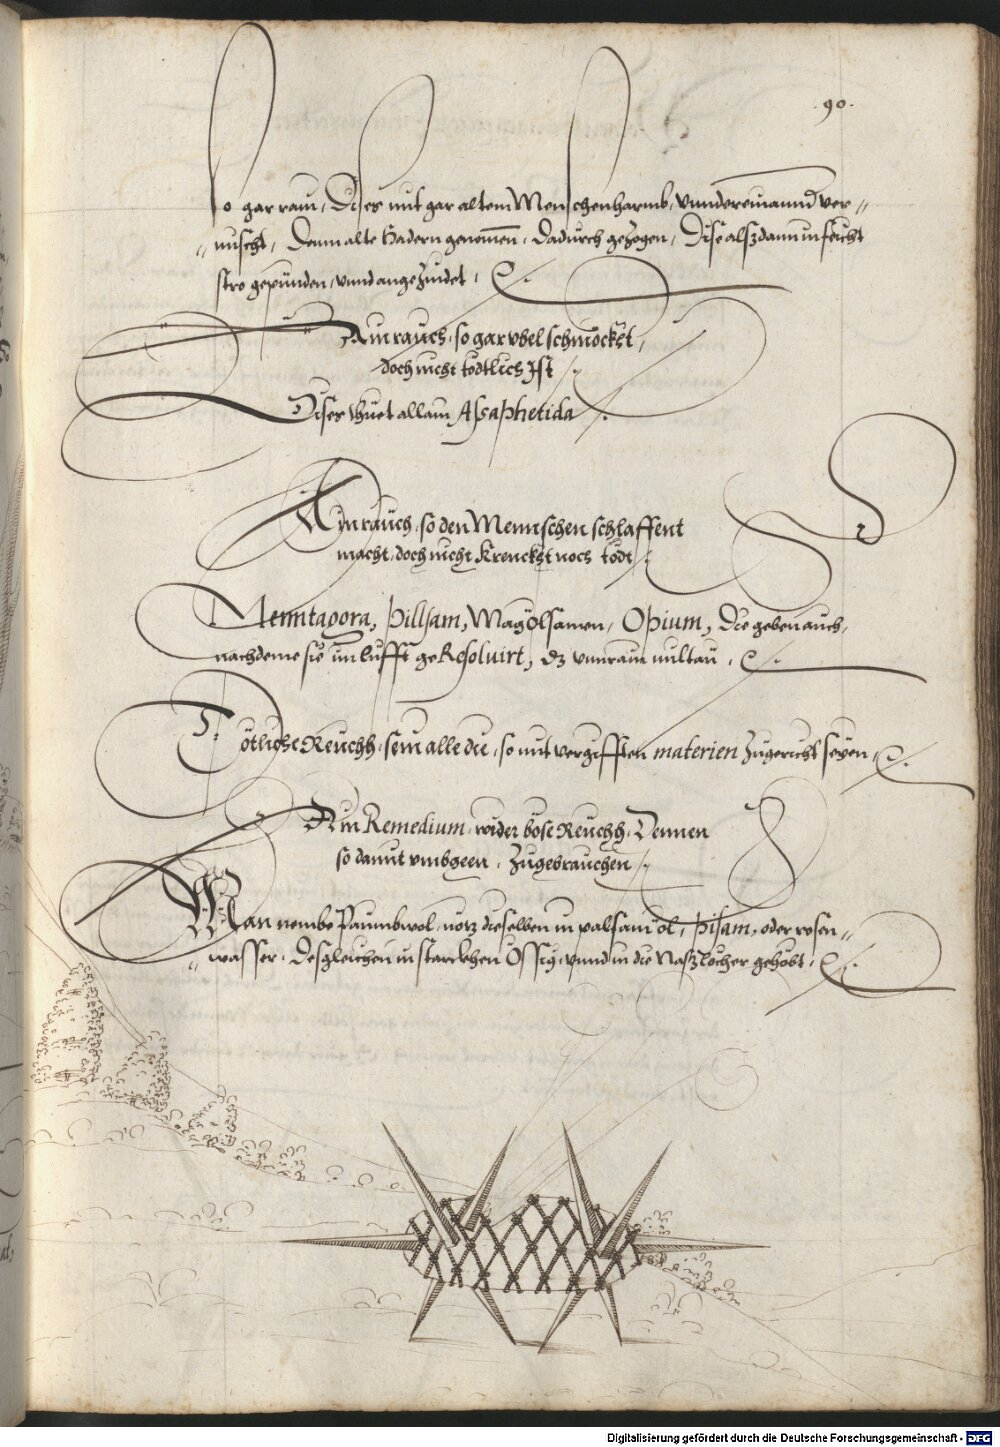 .90.
so gar rain, Dises mit gar altem Menschenharmb, vnndereinannd ver=
=mischt, Denn alte Hadern genomen, dadurch gezogen, Dise alßdann in feücht
stro gepünden, vnnd angezündet.
Ain rauch, so gar vbel schmöckht,
doch nicht tödtlich Ist
Dises thuet allain Assaphetida
Ain rauch, so den Mennschen schlaffent
macht, doch nicht Krenckht noch tödt
Pillsam, Magölsamen, Opium, Die geben auch,
nachdeme sie im lufft geResoluirt, dz
Tötliche Reuchh, sein alle die, so mit vergifften materien zugericht seyen,
Ain Remedium, wider böse Reuchh, Dennen
so damit vmbgeen, Zugebrauchen
Man nembe Paumbwol, nötz dieselben in palsam öl, Pisam, oder rosen=
=wasser, Desgleichen in starckhen Össig, vnnd in die Naßlöcher gehöbt,
Digitalisierung gefördert durch die Deutsche Forschungsgemeinschaft - DFG